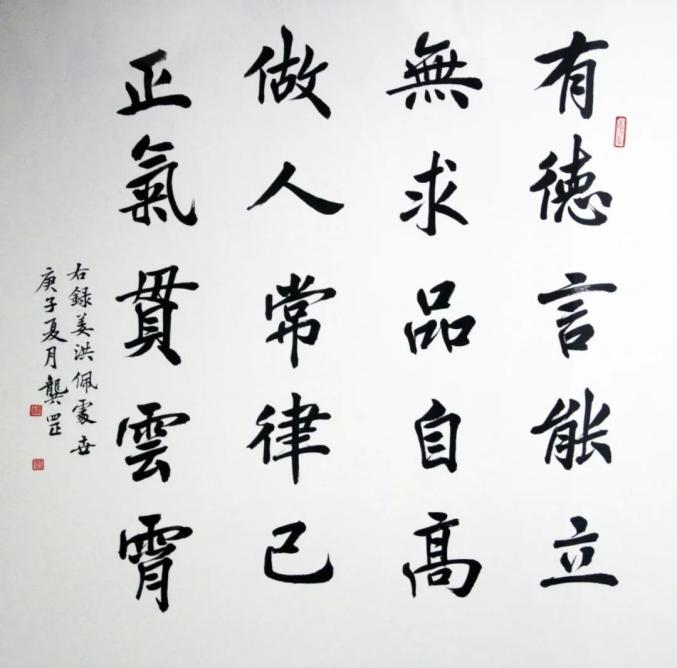 有德言能立
無求品自高
做人常律己
正氣貫雲霄
右録姜洪佩處世
庚子夏月龔罡